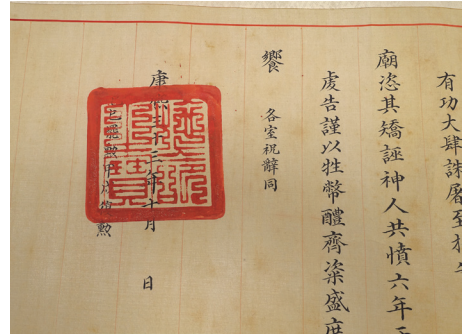 有功大肆誅屠至
廟恣其矯誣神人共憤六年
虔告謹以牲幣醴齊粢盛庶
饗 各室祝辭同
康熙三十三年十月 日